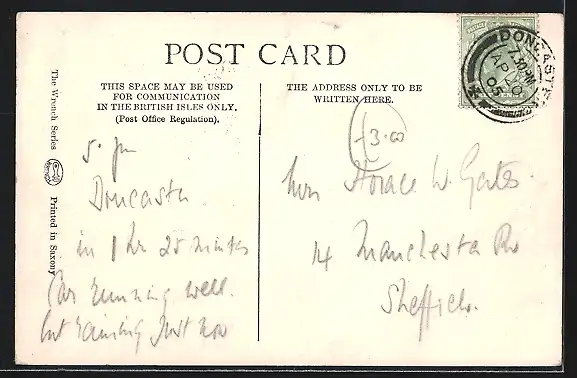 POST CARD
THIS SPACE MAY BE USED
FOR COMMUNICATION
IN THE BRITISH ISLES ONLY.
(Post Office Regulation).
THE ADDRESS ONLY TO BE
WRITTEN HERE.
The Wrench Series
Printed in Saxony
DONCASTER
7.30PM
AP 20
05
3.00
5. pm
Doncaster
in 1 hr 25 minutes
Car running well.
but raining just now
Horace W. Gates
14 Manchester Rd
Sheffield.